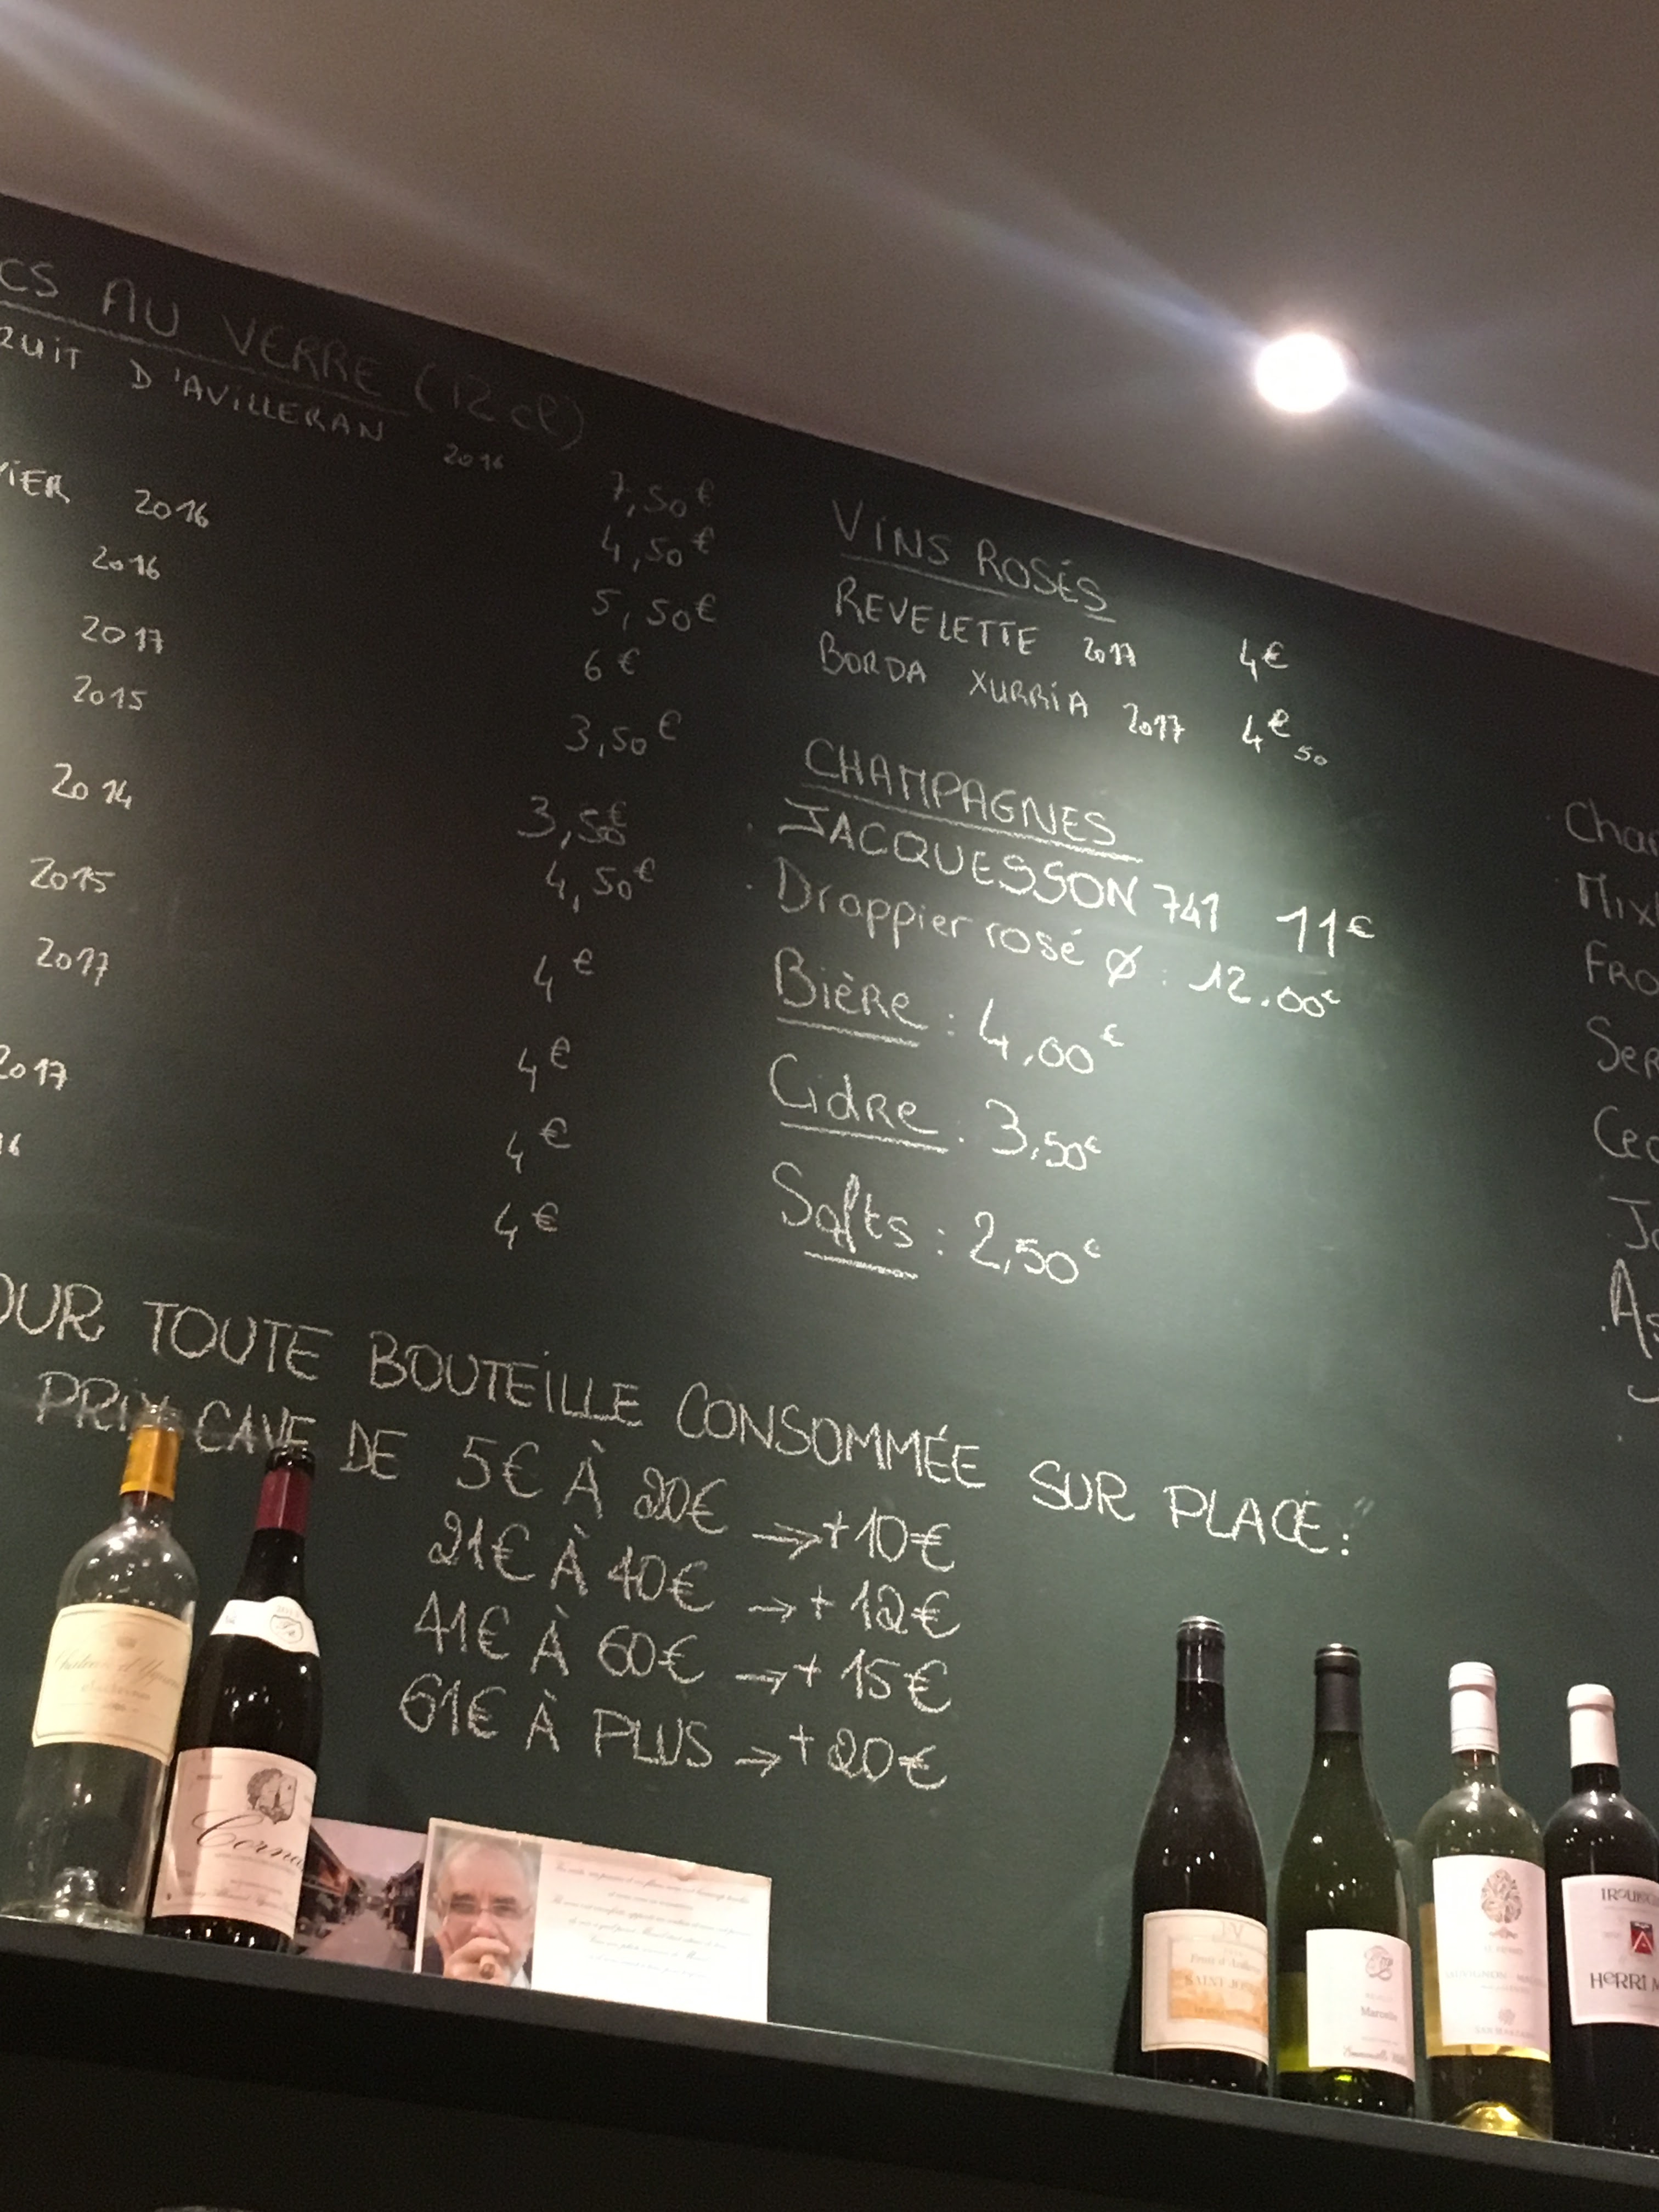 CS AU VERRE (12cl)
RUIT D'AVILLERAN 2016 7,50€
4,50€
VIER 2016 5,50€
2016 6€
2017 3,50€
2015 3,50€
2014 4,50€
2015 4€
2017 4€
2017 4€
16 4€
VINS ROSÉS
REVELETTE 2017 4€
BORDA XURRIA 2017 4€50
CHAMPAGNES
JACQUESSON 741 11€
Drappier rosé Ø : 12.00€
Bière : 4,00€
Cidre : 3,50€
Softs : 2,50€
Char
Mix
FRO
SER
Cec
Jo
As
OUR TOUTE BOUTEILLE CONSOMMÉE SUR PLACE :
PRIX CAVE DE 5€ À 20€ → +10€
21€ À 40€ → +12€
41€ À 60€ → +15€
61€ À PLUS → +20€
Cornas
J.V
SAINT JOS
Marcelle
SAUVIGNON
IROULÉGUY
HERRI M